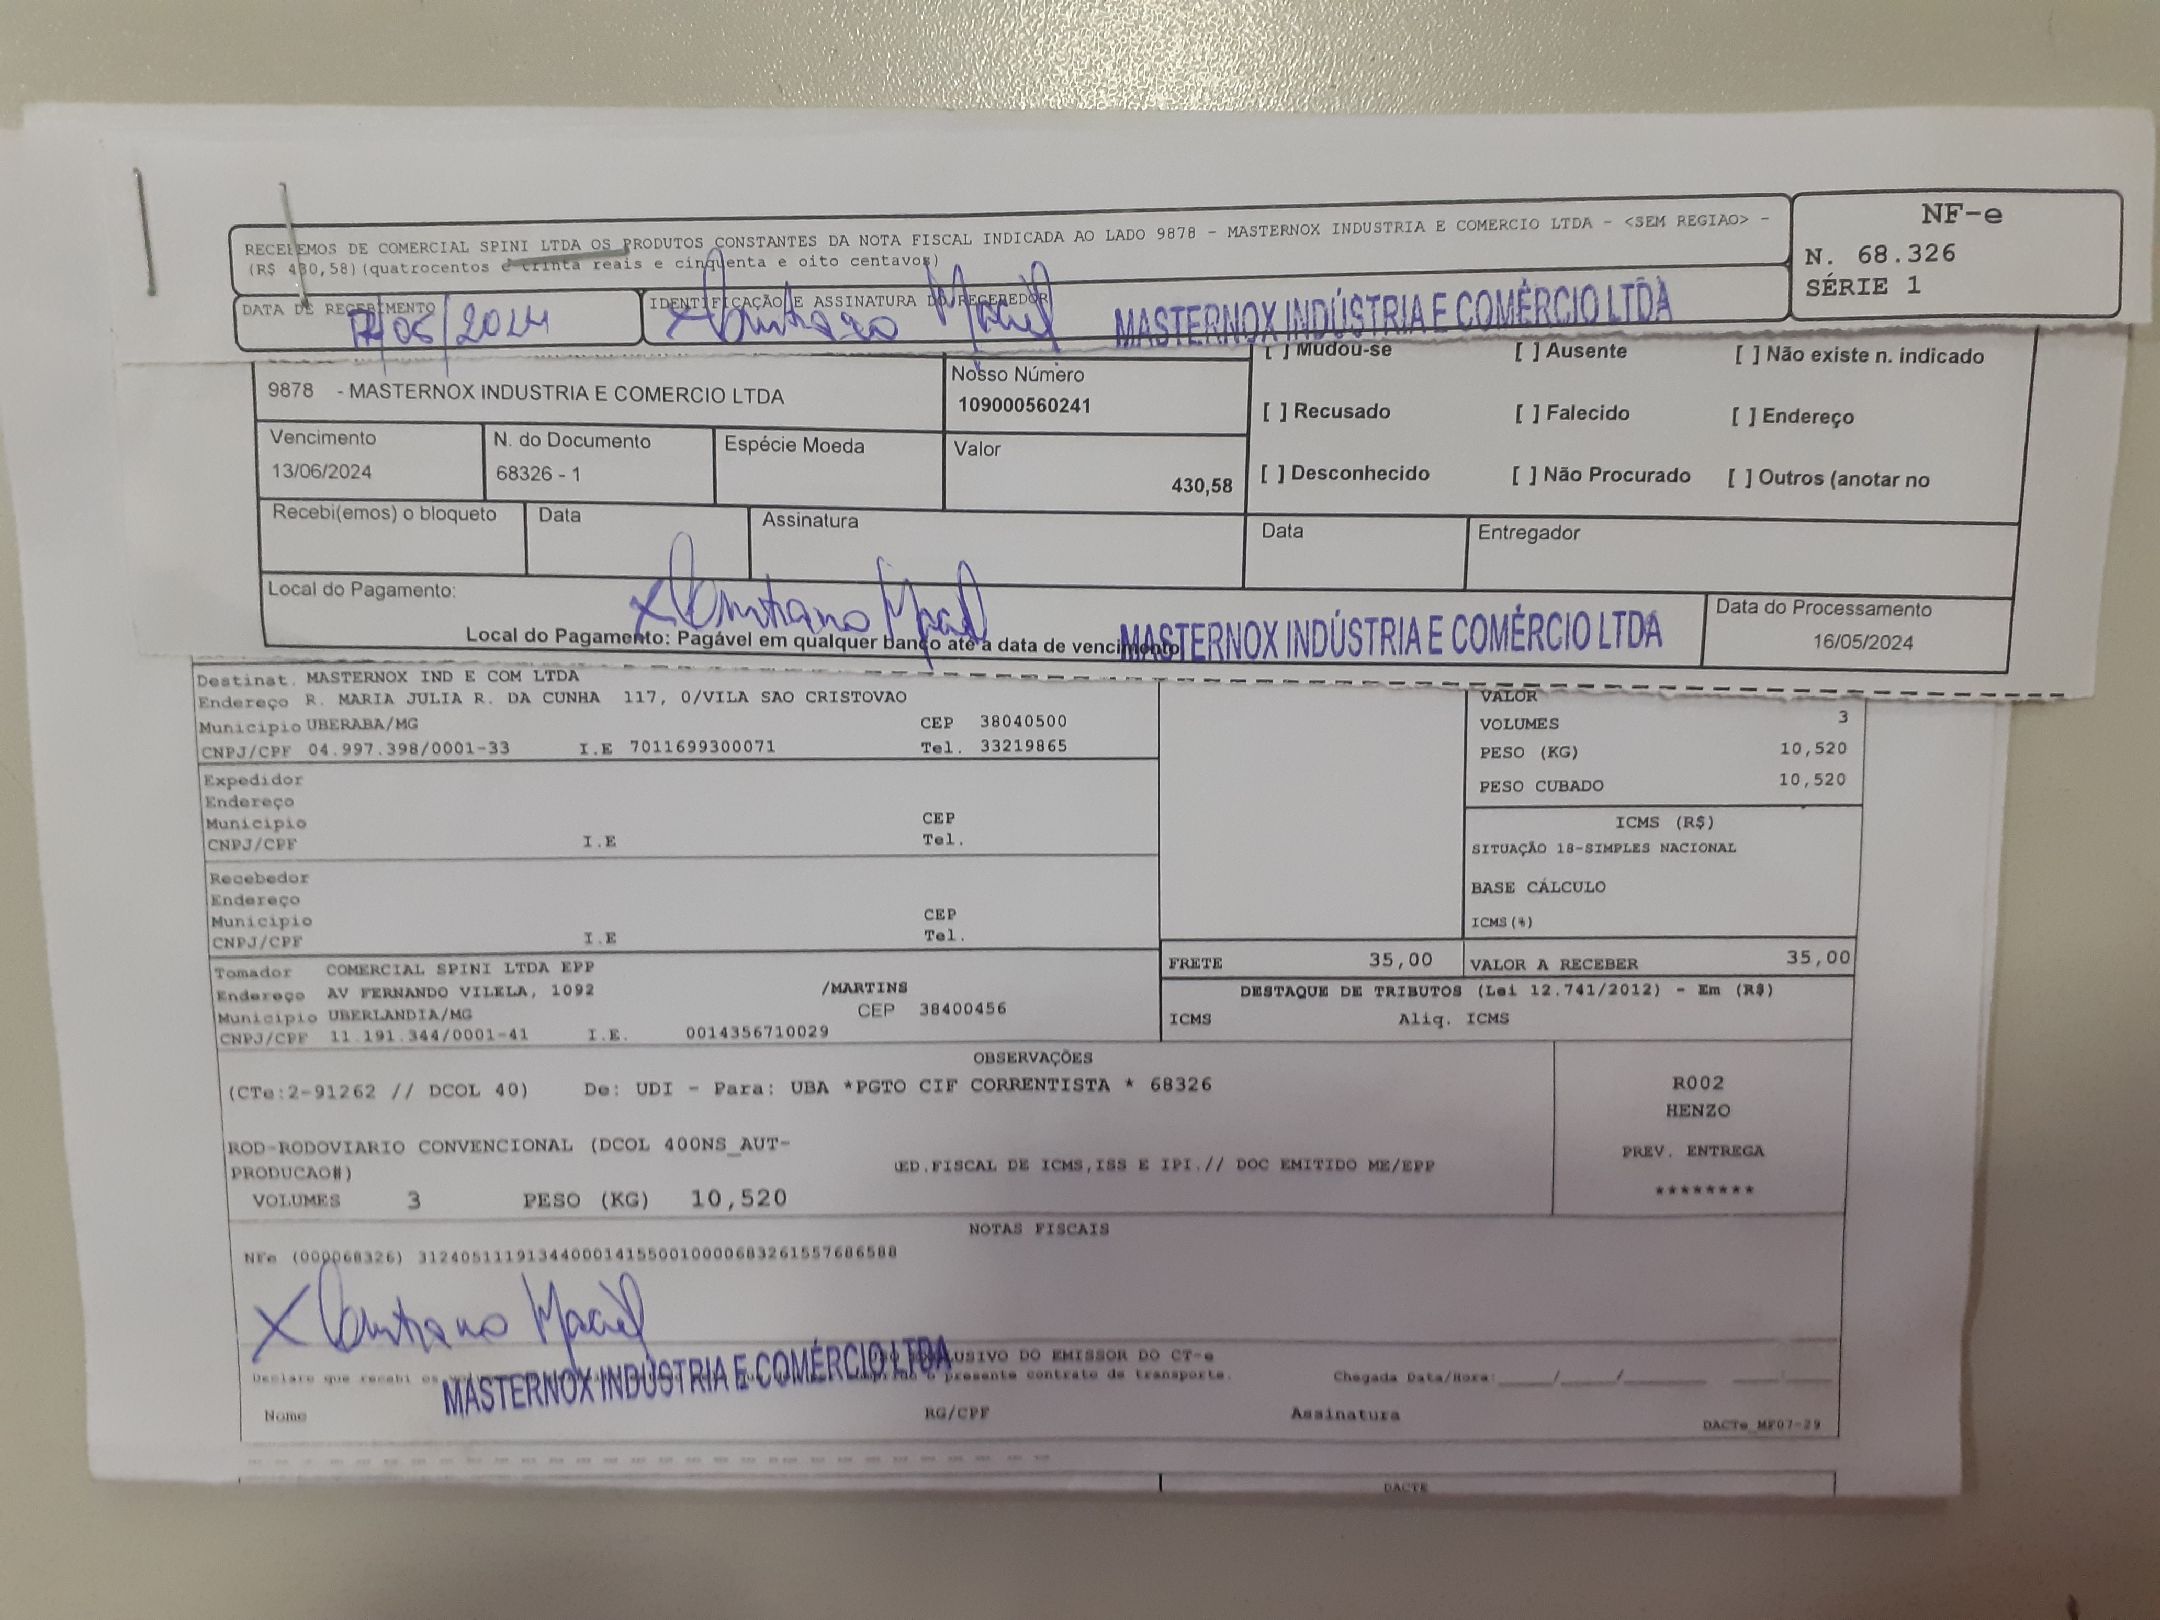 RECEBEMOS DE COMERCIAL SPINI LTDA OS PRODUTOS CONSTANTES DA NOTA FISCAL INDICADA AO LADO 9878 - MASTERNOX INDUSTRIA E COMERCIO LTDA - <SEM REGIAO> -
(R$ 430,58)(quatrocentos e trinta reais e cinquenta e oito centavos)
NF-e
N. 68.326
SÉRIE 1
DATA DE RECEBIMENTO
/05/2024
IDENTIFICAÇÃO E ASSINATURA DO RECEBEDOR
Maciel
MASTERNOX INDÚSTRIA E COMÉRCIO LTDA
9878 - MASTERNOX INDUSTRIA E COMERCIO LTDA
Nosso Número
109000560241
[ ] Mudou-se [ ] Ausente [ ] Não existe n. indicado
[ ] Recusado [ ] Falecido [ ] Endereço
[ ] Desconhecido [ ] Não Procurado [ ] Outros (anotar no
Vencimento
13/06/2024
N. do Documento
68326 - 1
Espécie Moeda
Valor
430,58
Recebi(emos) o bloqueto
Data
Assinatura
Data
Entregador
Local do Pagamento:
X Maciel
Local do Pagamento: Pagável em qualquer banco até a data de vencimento
MASTERNOX INDÚSTRIA E COMÉRCIO LTDA
Data do Processamento
16/05/2024
Destinat. MASTERNOX IND E COM LTDA
Endereço R. MARIA JULIA R. DA CUNHA 117, 0/VILA SAO CRISTOVAO
Municipio UBERABA/MG CEP 38040500
CNPJ/CPF 04.997.398/0001-33 I.E 7011699300071 Tel. 33219865
VALOR
VOLUMES 3
PESO (KG) 10,520
PESO CUBADO 10,520
Expedidor
Endereço
Municipio CEP
CNPJ/CPF I.E Tel.
ICMS (R$)
SITUAÇÃO 18-SIMPLES NACIONAL
BASE CÁLCULO
ICMS(%)
Recebedor
Endereço
Municipio CEP
CNPJ/CPF I.E Tel.
Tomador COMERCIAL SPINI LTDA EPP
Endereço AV FERNANDO VILELA, 1092 /MARTINS
Municipio UBERLANDIA/MG CEP 38400456
CNPJ/CPF 11.191.344/0001-41 I.E. 0014356710029
FRETE 35,00 VALOR A RECEBER 35,00
DESTAQUE DE TRIBUTOS (Lei 12.741/2012) - Em (R$)
ICMS Aliq. ICMS
OBSERVAÇÕES
(CTe:2-91262 // DCOL 40) De: UDI - Para: UBA *PGTO CIF CORRENTISTA * 68326
ROD-RODOVIARIO CONVENCIONAL (DCOL 400NS_AUT-
PRODUCAO#)
ED.FISCAL DE ICMS,ISS E IPI.// DOC EMITIDO ME/EPP
VOLUMES 3 PESO (KG) 10,520
R002
HENZO
PREV. ENTREGA
********
NOTAS FISCAIS
NFe (000068326) 31240511191344000141550010000683261557686588
X Maciel
MASTERNOX INDÚSTRIA E COMÉRCIO LTDA
LUSIVO DO EMISSOR DO CT-e
Declaro que recebi os o presente contrato de transporte.
Chegada Data/Hora:____/____/____
Nome RG/CPF Assinatura
DACTe_MF07-29
DACTE